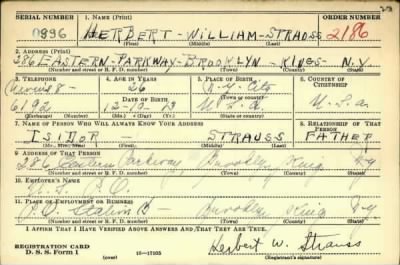 SERIAL NUMBER 1. NAME (Print) ORDER NUMBER
HERBERT - WILLIAM - STRAUSS 2186
(First) (Middle) (Last)
2. ADDRESS (Print)
386 EASTERN-PARKWAY-BROOKLYN - KINGS - N.Y.
(Number and street or R. F. D. number) (Town) (County) (State)
3. TELEPHONE 4. AGE IN YEARS 5. PLACE OF BIRTH 6. COUNTRY OF CITIZENSHIP
26 N.Y. City
DATE OF BIRTH (Town or county)
6192 12-10-13 U.S.A. U.S.A.
(Exchange) (Number) (Mo.) (Day) (Yr.) (State or country)
7. NAME OF PERSON WHO WILL ALWAYS KNOW YOUR ADDRESS 8. RELATIONSHIP OF THAT PERSON
ISIDOR - STRAUSS FATHER
(Mr., Mrs., Miss) (First) (Middle) (Last)
9. ADDRESS OF THAT PERSON
386 Eastern Parkway, Brooklyn Kings N.Y.
(Number and street or R. F. D. number) (Town) (County) (State)
10. EMPLOYER'S NAME
11. PLACE OF EMPLOYMENT OR BUSINESS
Station Brooklyn Kings N.Y.
(Number and street or R. F. D. number) (Town) (County) (State)
I AFFIRM THAT I HAVE VERIFIED ABOVE ANSWERS AND THAT THEY ARE TRUE.
REGISTRATION CARD
D. S. S. FORM 1 (over) 16—17105 Herbert W. Strauss
(Registrant's signature)